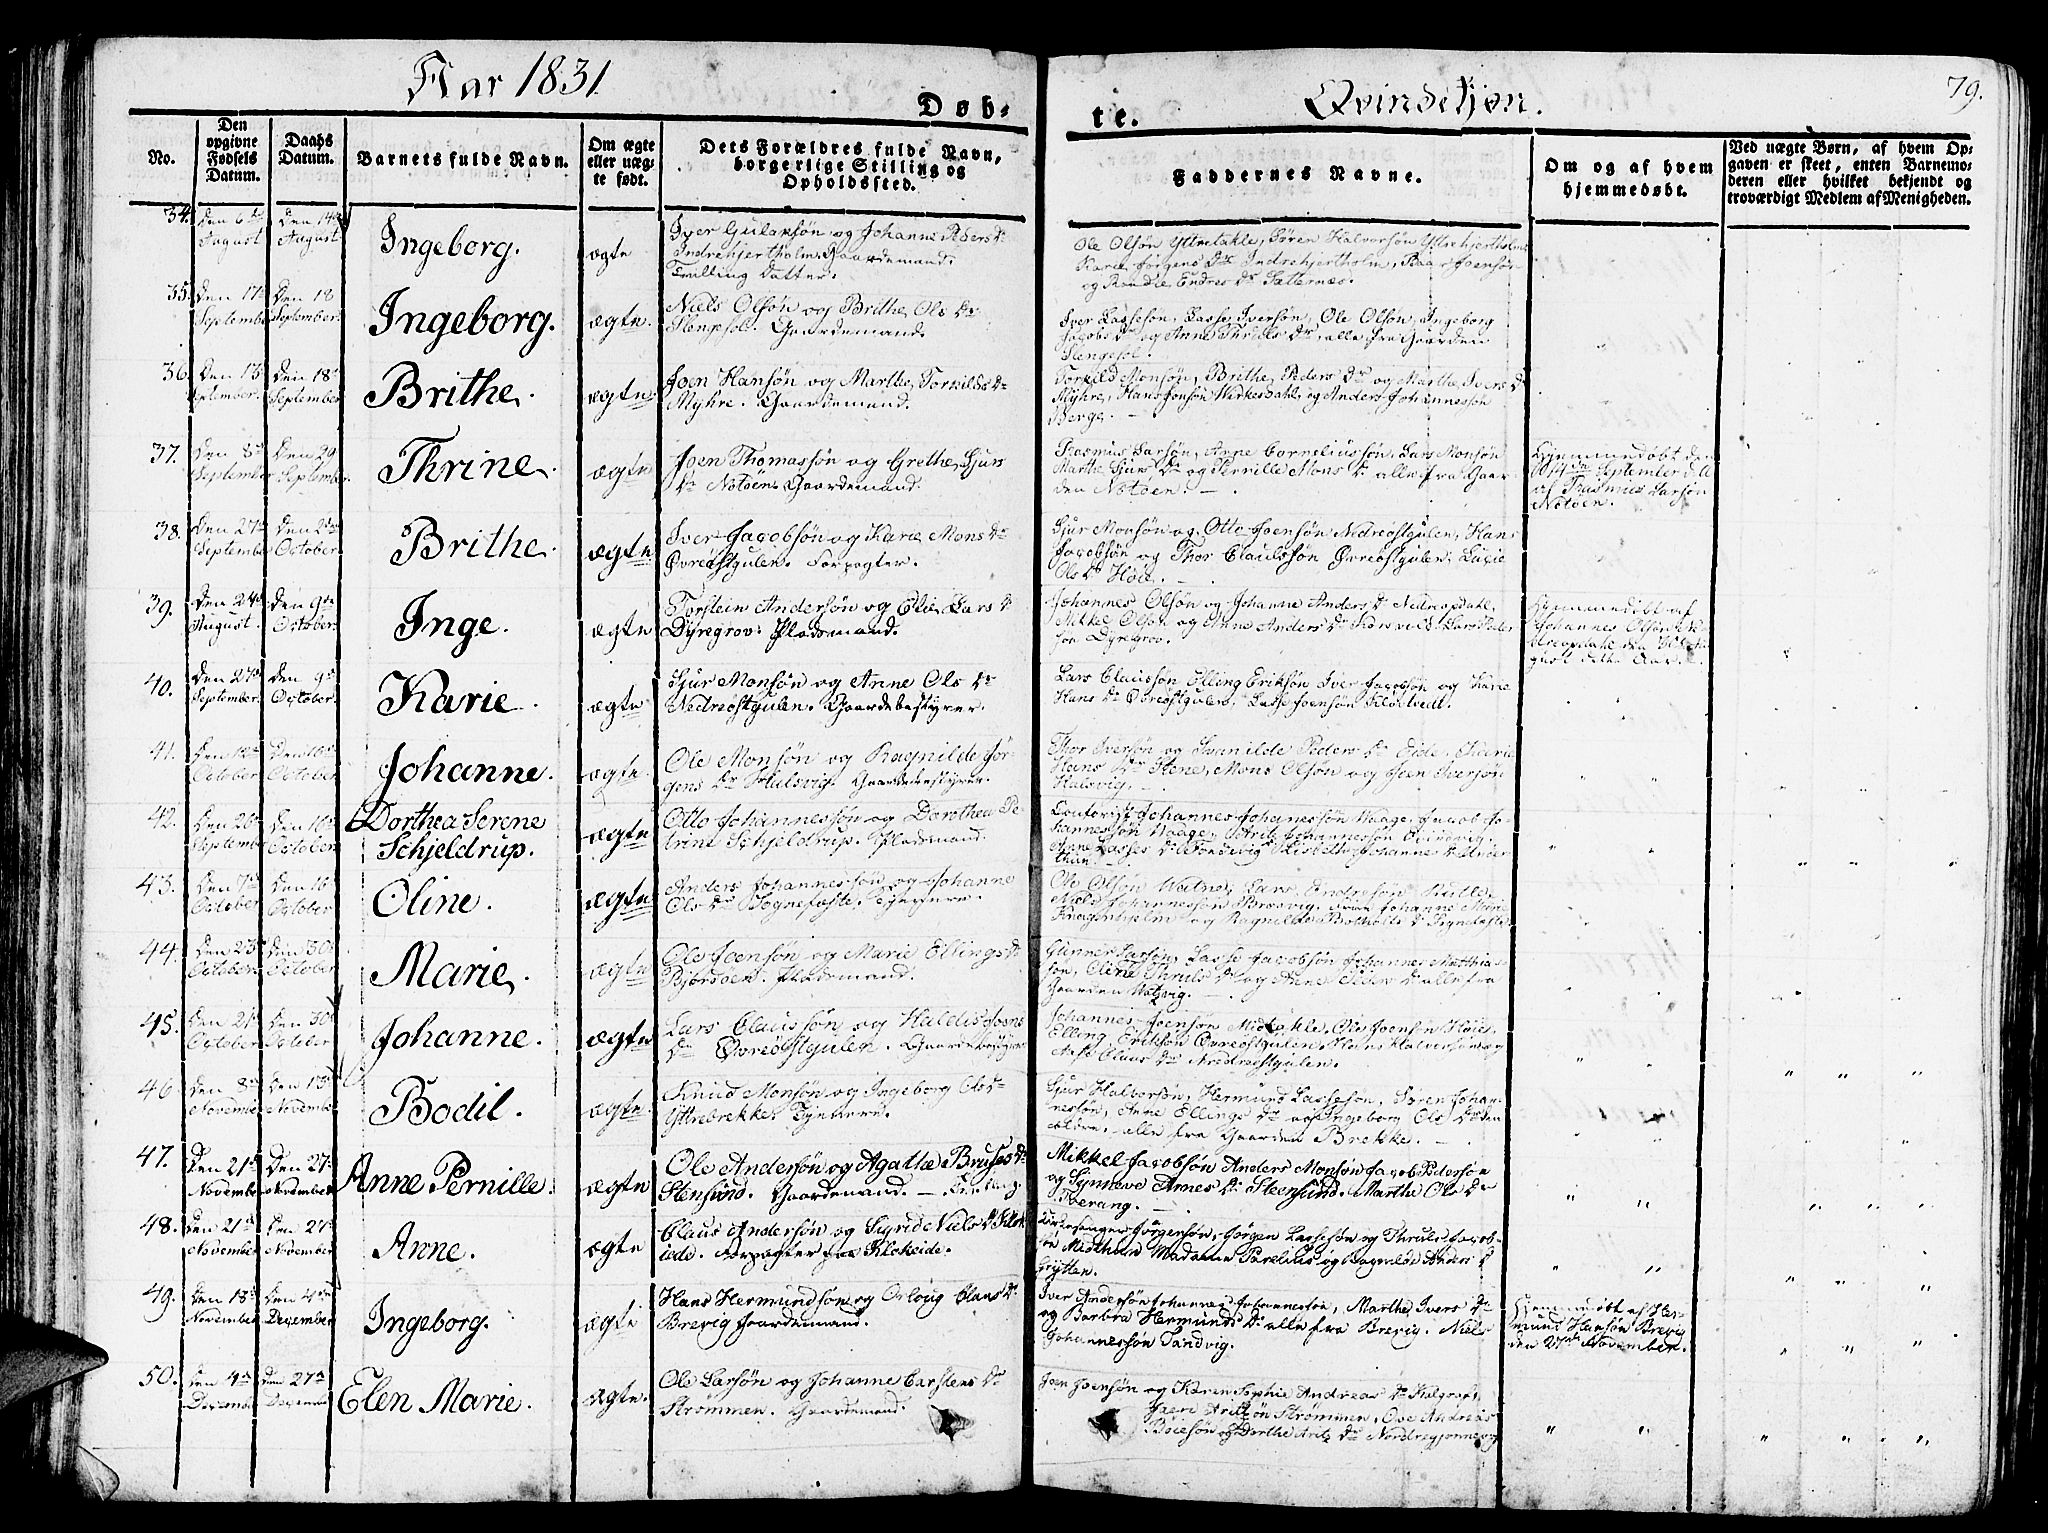 Aar 1831
Døb-
te.
Qvindekjøn.
79.
No.
Den opgivne Fødsels Datum.
Daabs Datum.
Barnets fulde Navn.
Om ægte eller uægte født.
Dets Forældres fulde Navn, borgerlige Stilling og Opholdssted.
Faddernes Navne.
Om og af hvem hjemmedøbt.
Ved uægte Børn, af hvem Opgaven er skeet, enten Barnemoderen eller hvilket bekjendt og troværdigt Medlem af Menigheden.
34. Den 6te August
Den 14de August
Ingeborg.
ægte
Iver Gulaksøn og Johanne Peders Dr
Indrehjertholm. Gaardemand.
Trilling Datter.
Ole Olsøn Yttretakle, Søren Halvorsøn Yttrehjertholm
Karie Jørgens Dr Indrehjertholm, Baar Joensøn
og Randie Endres Dr Sætternæs.
35. Den 17de September
Den 18 September
Ingeborg.
ægte.
Niels Olsøn og Brithe Ols Dr
Stengesol. Gaardemand.
Iver Lassesøn, Lasse Iversøn, Ole Olsøn, Ingeborg
Jacobs Dr og Anne Thruls Dr, alle fra Gaarden
Stengesol.
36. Den 13de September.
Den 18de September
Brithe.
ægte.
Joen Hansøn og Marthe Torkilds Dr
Myhre. Gaardemand.
Torkild Monsøn, Brithe Peders Dr og Marthe Ivers Dr
Myhre, Hans Jonsøn Wirkesdahl, og Anders Johannessøn
Berge.
37. Den 8de September
Den 29 September.
Thrine.
ægte
Joen Thomassøn og Grethe Sjurs
Dr Notøen. Gaardemand.
Rasmus Larsøn, Anne Corneliussøn, Lars Monsøn
Marthe Sjurs Dr og Pernille Mons Dr alle fra Gaar-
den Notøen.
Hjemmedøbt den
September d. A
af Rasmus Larsøn
Notøen.
38. Den 27de September
Den 2den October
Brithe.
ægte
Iver Jacobsøn og Karie Mons Dr
Øvreøstgulen. Forpagter.
Sjur Monsøn og Otto Joensøn Nedreøstgulen, Hans
Jacobsøn og Thor Claussøn Øvreøstgulen, Lucie
Ols Dr Høie.
39. Den 24de August.
Den 9de October.
Inge.
ægte
Torstein Andersøn og Elie Lars Dr
Dyregrov. Pladsmand.
Johannes Olsøn og Johanne Anders Dr Nedreopdahl,
Mikkel Olsøn og Anne Anders Dr Lars Peder-
søn Dyregrov.
Hjemmedøbt af
Johannes Olsøn Ne-
dreopdahl den 30te Au-
gust dette Aar.
40. Den 27de September.
Den 9de October.
Karie.
ægte
Sjur Monsøn og Anne Ols Dr
Nedreøstgulen. Gaardebestyrer.
Lars Claussøn Elling Eriksøn Iver Jacobsøn og Karie
Hans Dr Øvreøstgulen, Lasse Joensøn Kløvtvedt.
41. Den 12te October
Den 16de October
Johanne.
ægte.
Ole Monsøn og Ragnilde Jør-
gens Dr Halsvig. Gaardebestyrer.
Thor Iversøn og Svanilde Peders Dr Eide, Karie
Hans Dr Stene, Mons Olsøn og Joen Iversøn
Halsvig.
42. Den 26de September
Den 16de October
Dorthea Serene
Schjeldrup.
ægte
Otto Johannessøn og Dorothea Pe-
trine Schjeldrup. Pladsmand.
Contorist Johannes Johannessøn Waage, Jacob Jo-
hannessøn Waage, Johannessøn
Anne Lasses Dr Lisbeth Johannes Dr
43. Den 7de October
Den 16 October
Oline.
ægte
Anders Johannessøn og Johanne
Ols Dr Sognefæste. Tjenere.
Ole Olsøn Lars Andresøn Rutle,
Niels Johannessøn Johanne Marie
og Ragnilde Botholts Dr Sygnefæste.
44. Den 23de October
Den 30te October
Marie.
ægte
Ole Joensøn og Marie Ellings Dr
Bjørøen. Pladsemand.
Gunner Larsøn, Lasse Jacobsøn Johannes Matthias-
søn, Oline Thruls Dr og Anne Peders Dr alle fra
Gaarden
45. Den 21de October
Den 30te October
Johanne.
ægte
Lars Claussøn og Haldis Joens
Dr Øvreøstgulen. Gaardebruger.
Johannes Joensøn Midtakle, Ole Joensøn Høie,
Elling Eriksøn Øvreøstgulen, Hans Halvorsøn og
Claus Dr Nedreøstgulen.
46 Den 8de November
Den 13de November
Bodil.
ægte.
Knud Monsøn og Ingeborg Ols Dr
Yttrebrekke. Tjenere.
Sjur Halvorsøn, Hermund Lassesøn, Søren Johan-
nessøn, Anne Ellings Dr og Ingeborg Ols Dr den
ældre, alle fra Gaarden Brekke.
47. Den 21de November
Den 27de November
Anne Pernille.
ægte
Ole Andersøn og Agathe Bruses Dr
Stensund. Gaardemand. — Tvilling.
Mikkel Jacobsøn Anders Monsøn Jacob Pedersøn
og Synneve Arnes Dr Steensund. Marthe Ols Dr
Tverang.
48. Den 21de November
Den 27de November
Anne.
ægte
Claus Andersøn og Sigrid Niels Dr Klok-
eide. Forpagter paa Klokeide.
Kirkesanger Jørgensøn, Jørgen Lassesøn og Thrule Jacob-
søn Midthun Madame Parelius og Ragnilde Anders Dr
Grytten.
49. Den 18de November
Den 4de December
Ingeborg.
ægte
Hans Hermundsøn og Orloug Claus Dr
Brevig Gaardemand.
Iver Andersøn Johannes Johannessøn, Marthe Ivers Dr
og Barbra Hermunds Dr alle fra Brevig. Niels
Johannessøn Tandvig.
Hjemmedøbt af Her-
mund Hansøn Brevig
den 27de November.
50. Den 4de December
Den 27de December
Elen Marie.
ægte.
Ole Larsøn og Johanne Carstens Dr
Strømmen. Gaardemand.
Joen Joensøn og Karen Sophie Andreas Dr Kalgraf,
Joen Strømmen, Ove Andreas
Bøiesøn og Dorthe Dr Nordregjønnevog